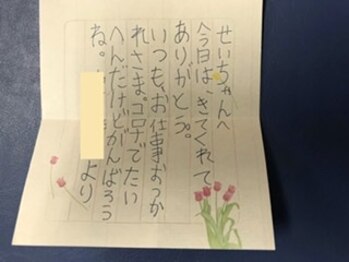 せいちゃんへ
今日は、きてくれて
ありがとう。
いつも、お仕事おつか
れさま。コロナでたい
へんだけどがんばろう
ね。
より